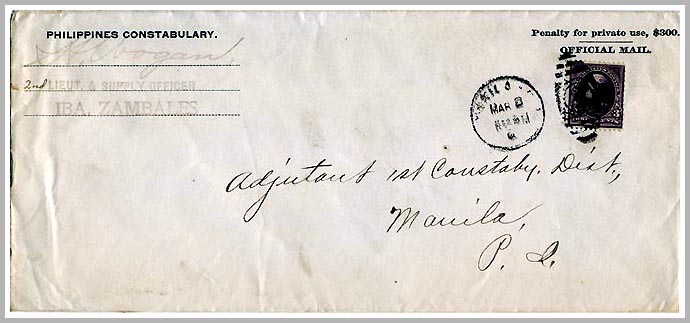 PHILIPPINES CONSTABULARY.
2nd LIEUT. & SUPPLY OFFICER
IBA, ZAMBALES
Penalty for private use, $300.
OFFICIAL MAIL.
MAR 8
Adjutant 1st Constaby. Dist,
Manila,
P. I.